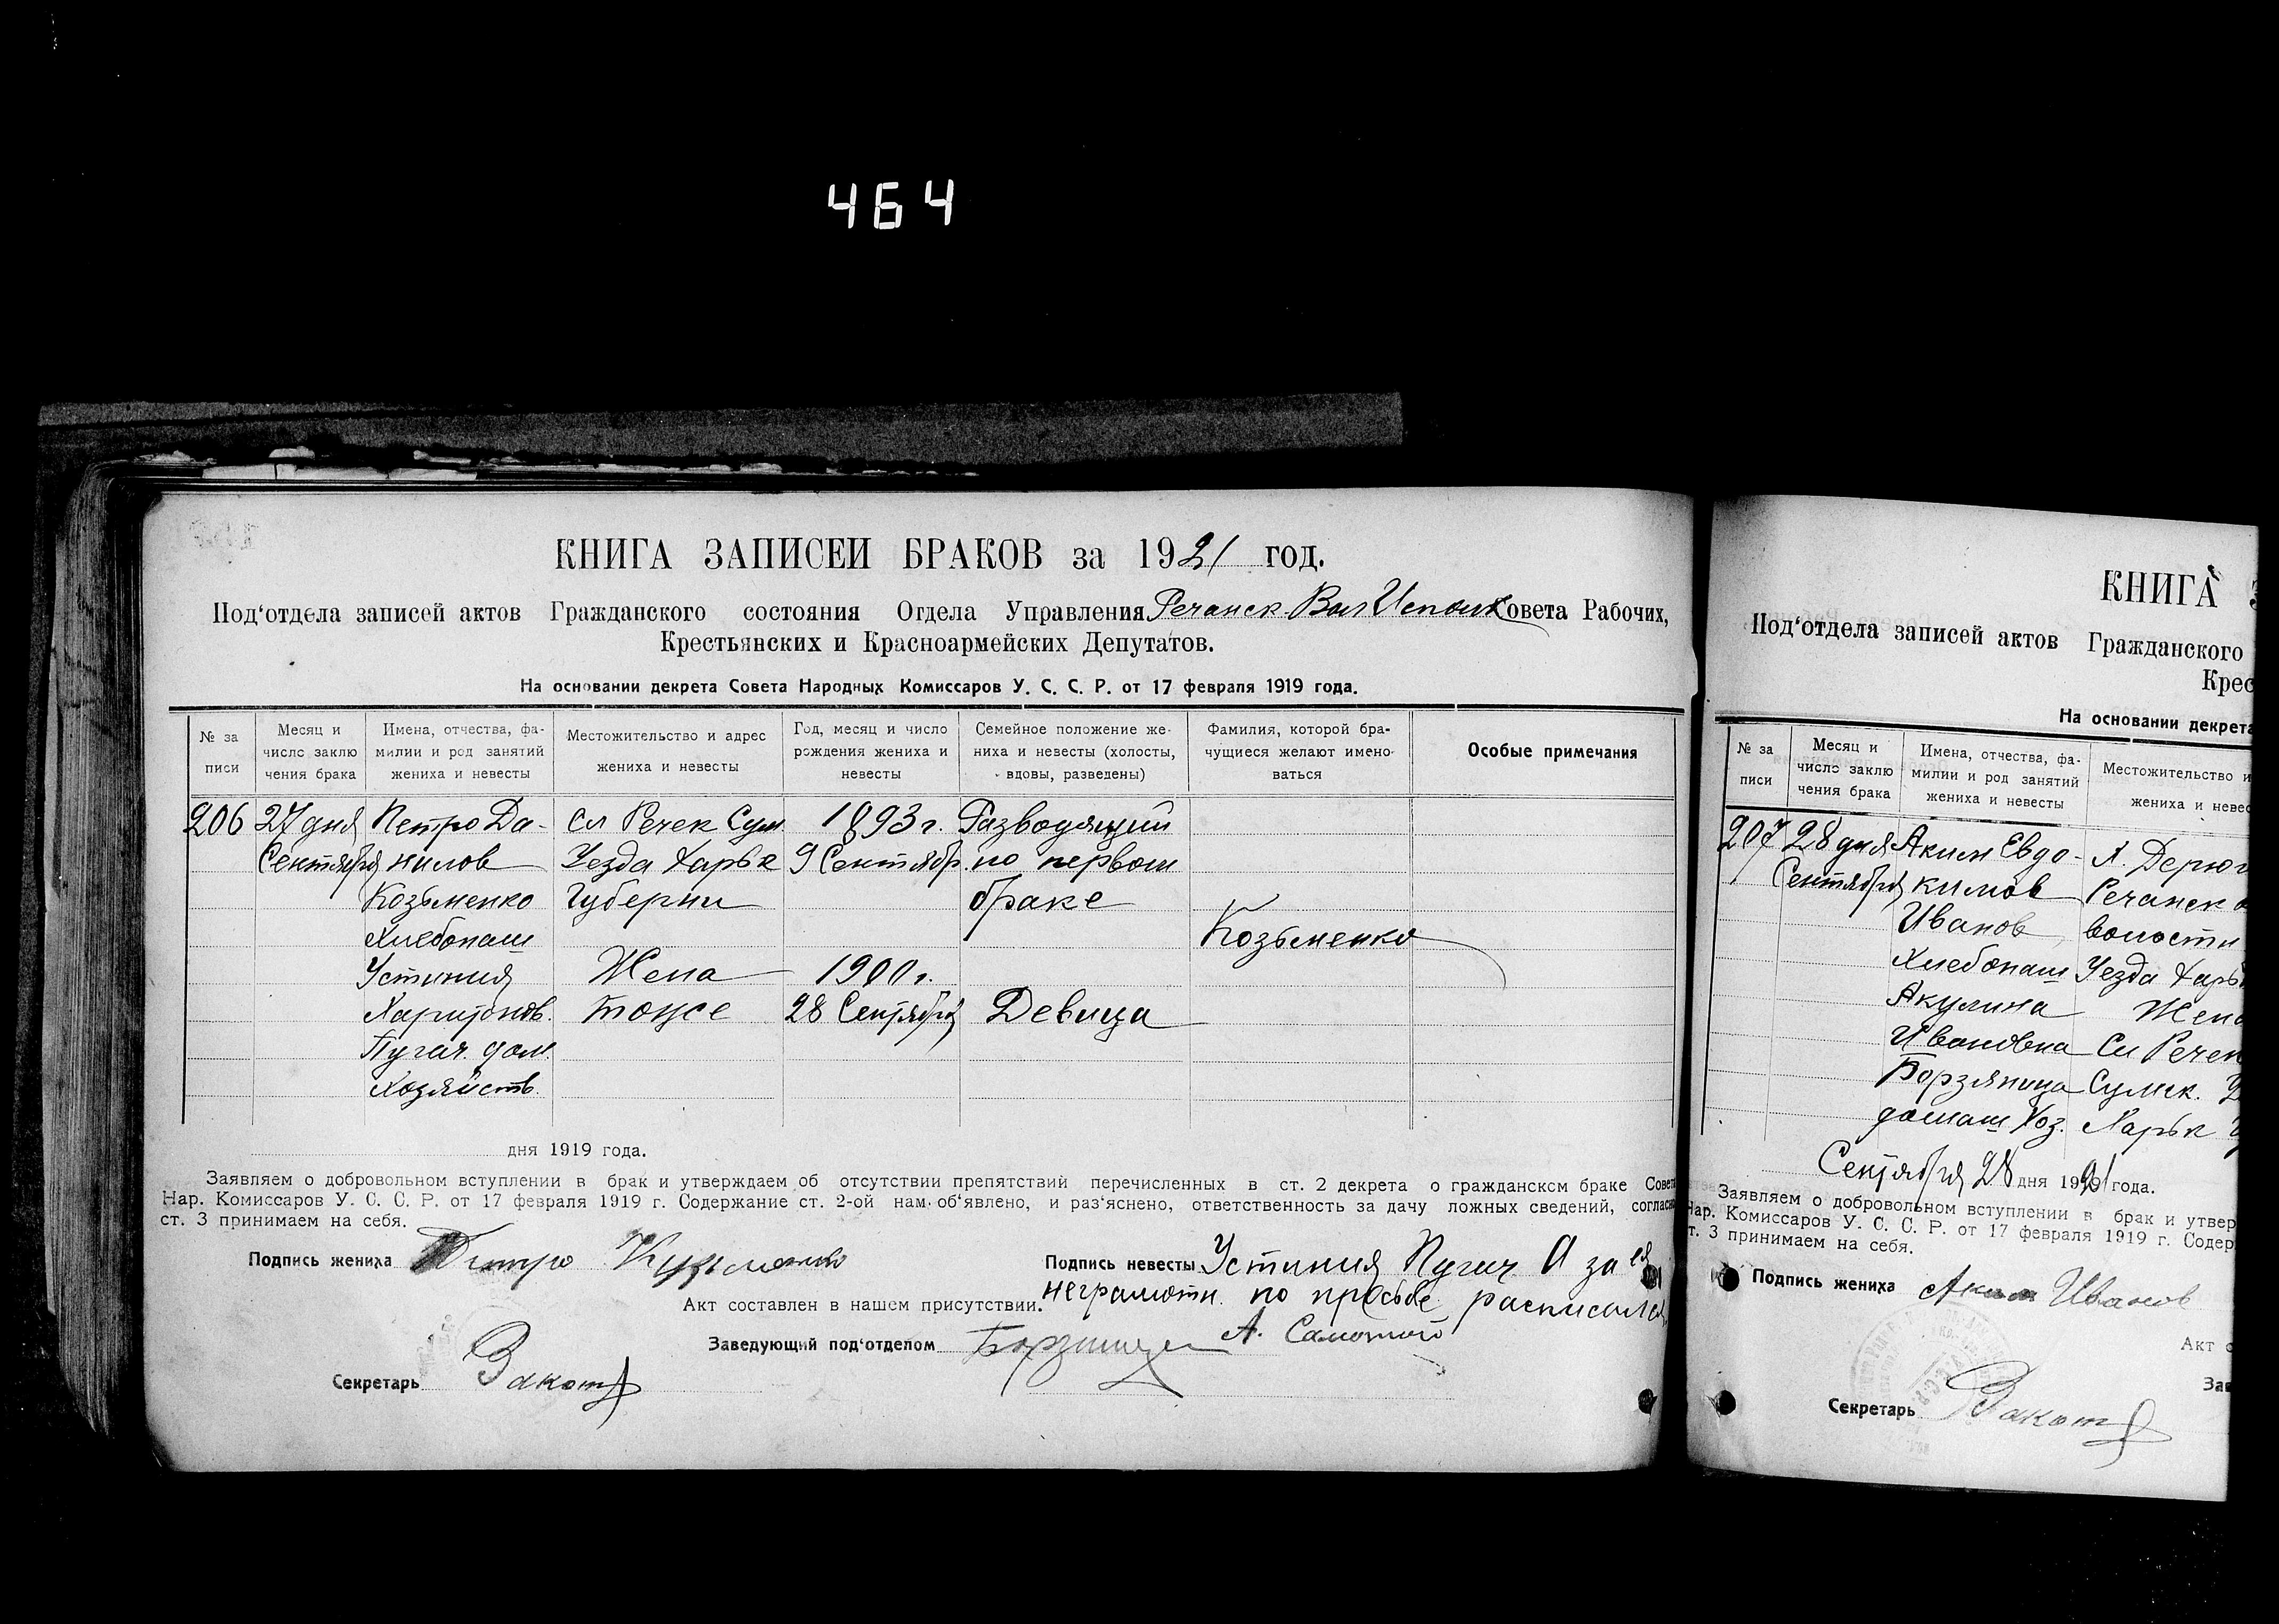 464
КНИГА ЗАПИСЕЙ БРАКОВ за 1921 год.
Под‘отдела записей актов Гражданского состояния Отдела Управления Речанск. Вол Исполк Совета Рабочих,
Крестьянских и Красноармейских Депутатов.
На основании декрета Совета Народных Комиссаров У. С. С. Р. от 17 февраля 1919 года.
№ за
писи
Месяц и
число заклю
чения брака
Имена, отчества, фа-
милии и род занятий
жениха и невесты
Местожительство и адрес
жениха и невесты
Год, месяц и число
рождения жениха и
невесты
Семейное положение же-
ниха и невесты (холосты,
вдовы, разведены)
Фамилия, которой бра-
чущиеся желают имено-
ваться
Особые примечания
206 27 дня Петро Да- сл Речек Сум. 1893 г. Разводящий
Сентября нилов Уезда Харьк 9 Сентябр. по первом
Козьменко Губерни браке
Хлебопаш Козьменко
Устиния Жена 1900 г.
Харитонов. тоже 28 Сентября Девица
Пугач. дом.
Хозяйств.
дня 1919 года.
Заявляем о добровольном вступлении в брак и утверждаем об отсутствии препятствий перечисленных в ст. 2 декрета о гражданском браке Совета
Нар. Комиссаров У. С. С. Р. от 17 февраля 1919 г. Содержание ст. 2-ой нам об‘явлено, и раз‘яснено, ответственность за дачу ложных сведений, согласно
ст. 3 принимаем на себя.
Подпись жениха Кузьменко
Подпись невесты Устиния Пугач А за ея
неграмотн. по просьбе расписался
Акт составлен в нашем присутствии.
А.
Заведующий под‘отделом
Секретарь
КНИГА З
Под‘отдела записей актов Гражданского
Крес
На основании декрета
№ за
писи
Месяц и
число заклю
чения брака
Имена, отчества, фа-
милии и род занятий
жениха и невесты
Местожительство и
жениха и невес
207 28 дня Аким Евдо- Х. Дерюг
Сентября кимов Речанск
Иванов волости
Хлебопаш Уезда Харьк
Акулина Жена
Ивановна Сл Речек
Борзяница Сумск. У
домаш Хоз. Харьк
Сентября 28 дня 1921 года.
Заявляем о добровольном вступлении в брак и утвер
Нар. Комиссаров У. С. С. Р. от 17 февраля 1919 г. Содер
ст. 3 принимаем на себя.
Подпись жениха Аким Иванов
Акт с
Зав
Секретарь